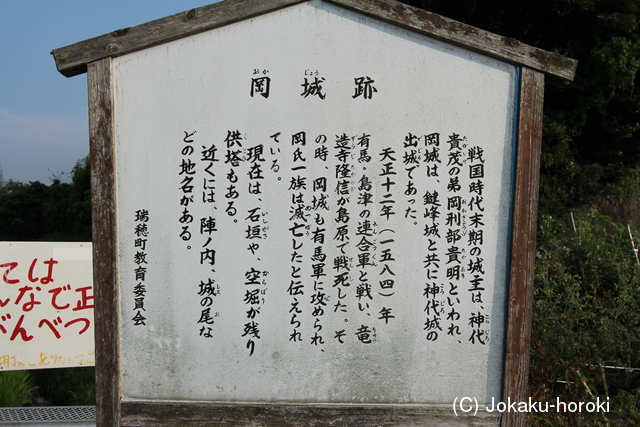 岡城跡
戦国時代末期の城主は、神代
貴茂の弟岡刑部貴明といわれ、
岡城は、鍵峰城と共に神代城の
出城であった。
天正十二年(一五八四)年
有馬・島津の連合軍と戦い、竜
造寺隆信が島原で戦死した。そ
の時、岡城も有馬軍に攻められ、
岡氏一族は滅亡したと伝えられ
ている。
現在は、石垣や、空堀が残り
供塔もある。
近くには、陣ノ内、城の尾な
どの地名がある。
瑞穂町教育委員会
ては
んなで正
べんべつ
(C) Jokaku-horoki